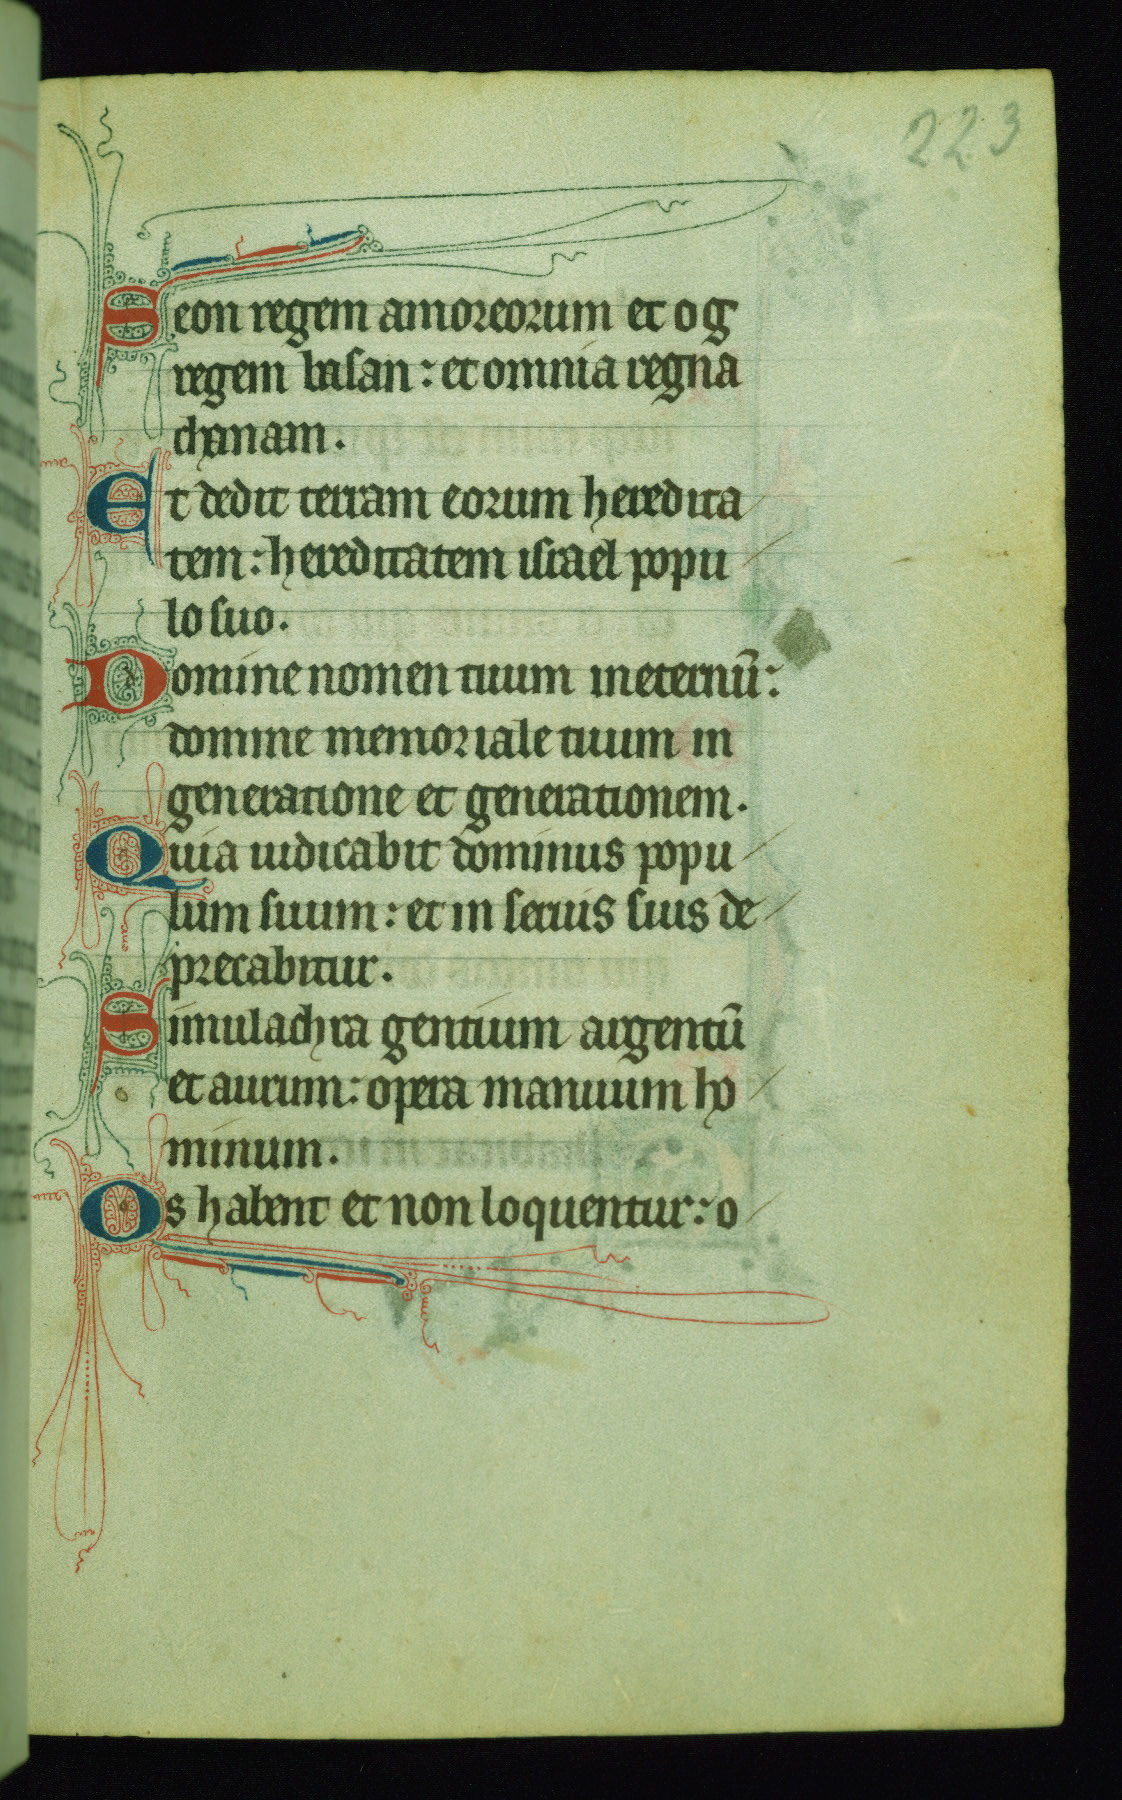 223
Seon regem amoreorum et og
regem basan : et omnia regna
chanaan.
Et dedit terram eorum heredita
tem : hereditatem israel popu
lo suo.
Domine nomen tuum in eternū :
domine memoriale tuum in
generatione et generationem.
Quia iudicabit dominus popu
lum suum : et in seruis suis de
precabitur.
Simulachra gentium argentū
et aurum : opera manuum ho
minum.
Os habent et non loquentur : o